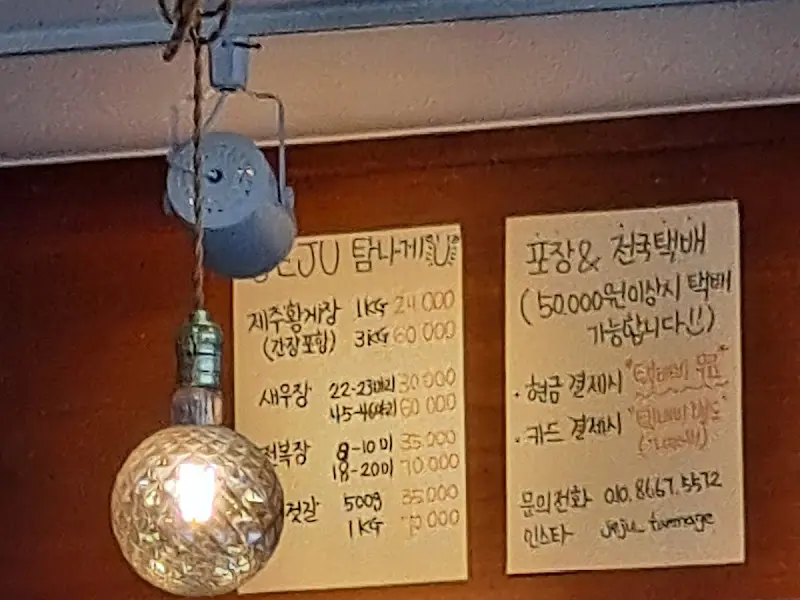 JEJU 탐나게
제주황게장 1KG 24 000
(간장포함) 3KG 60 000
새우장 22-23마리 30 000
45-46마리 60 000
전복장 8-10미 35.000
18-20미 70.000
젓갈 500g 35 000
1KG 70 000
포장 & 전국택배
(50.000원이상시 택배
가능합니다!!)
· 현금 결제시 "택배비 무료"
· 카드 결제시 "택배비 별도"
문의전화 010.8667.5572
인스타 jeju_tamnage